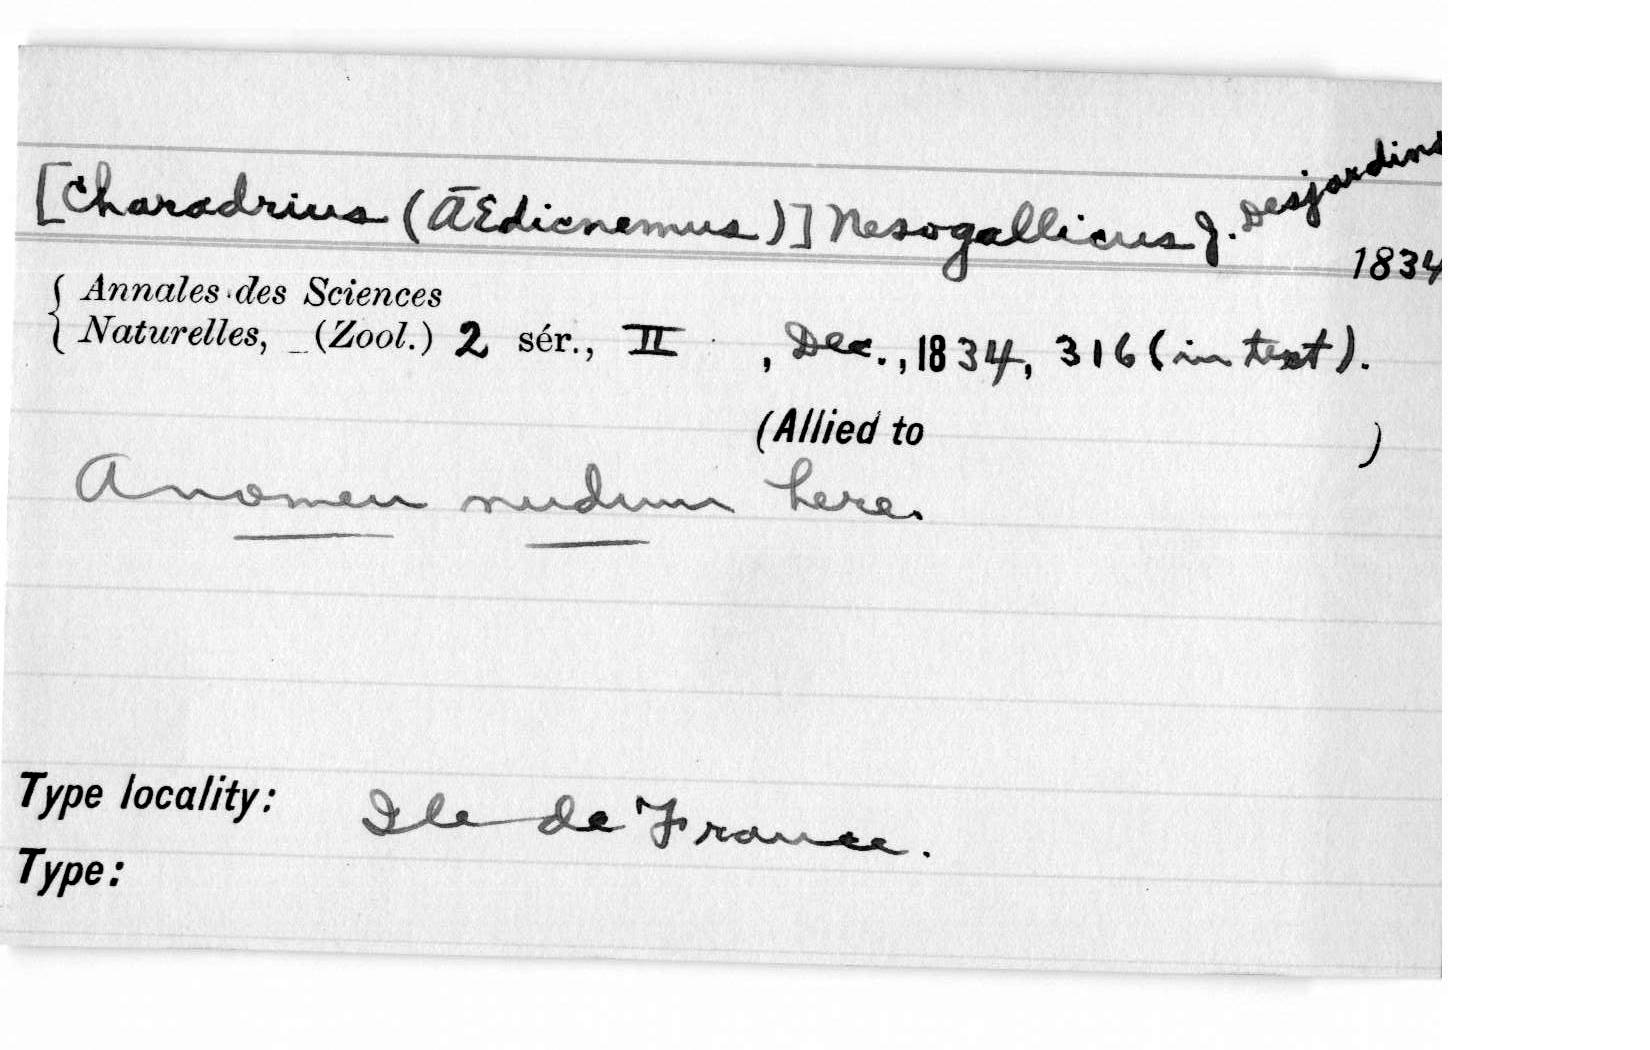 [Charadrius (ĀEdicnemus)] Nesogallicus J. Desjardins
1834
Annales des Sciences
Naturelles, (Zool.) 2 sér., II , Dec., 1834, 316 (in text).
(Allied to )
A nomen nudum here.
Type locality: Ile de France.
Type: